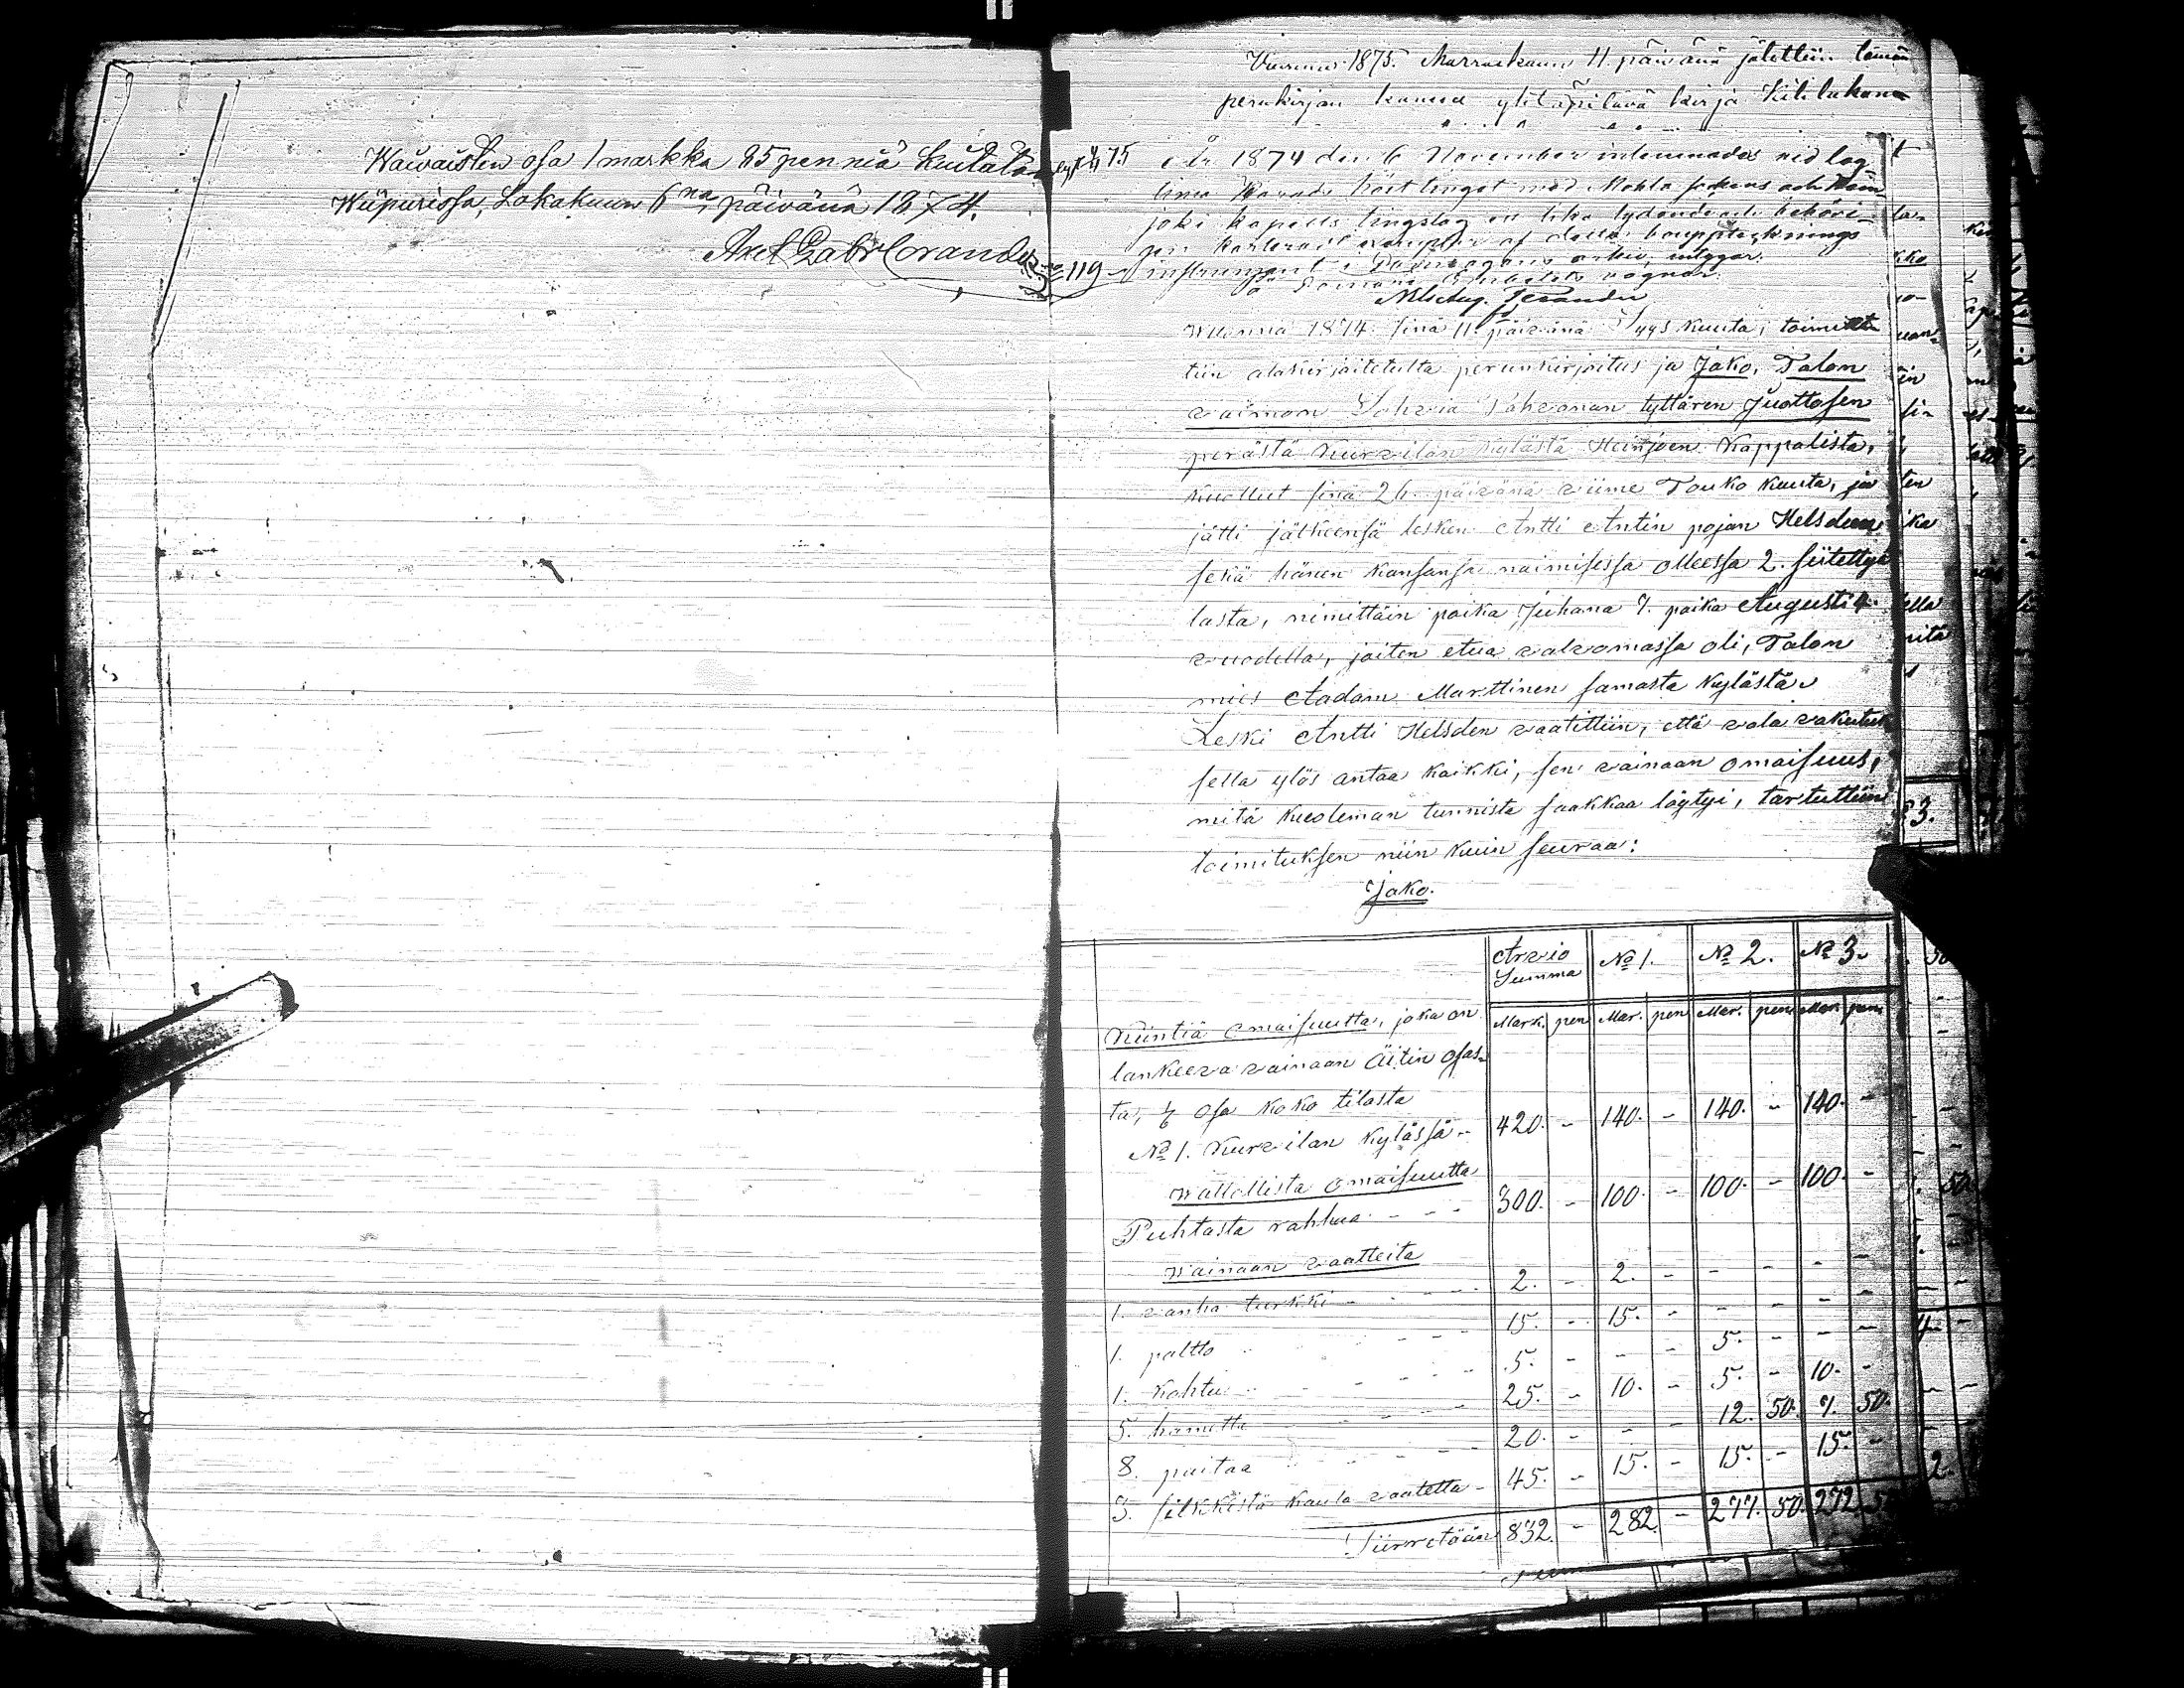 Waivaisten osa 1 markka 25 penniä kuitataan
Wiipurissa, Lokakuun 6na päivänä 1874.
Axel Gabr Corander
Vuonna 1875. Marraskuun 11 päivänä jätettiin tämän
perukirjan kanssa yhtäpitävä kirja Kihlakunnan
År 1874 den 6 November inlemnades vid lag
tima höst tinget med Mohla sockens och Hein
joki kapells tingslag en lika lydande
af detta bouppteknings
№ 119 instrument i
Nils Aug. Terander
Wuonna 1874 sinä 11. päivänä Syys kuuta, toimitet
tiin alakirjoitetulta perunkirjoitus ja Jako, Talon
vaimon Sohvia Pahvonan tyttären Juottosen
perästä Kurvilan kylästä Heinjoen Kappalista,
kuollut sinä 26. päivänä viime Touko kuuta, ja
jätti jälkeensä lesken Antti Antin pojan Helsden
sekä hänen kansansa naimisessa olleessa 2. siitettyä
lasta, nimittäin poika Juhana 7. poika Augusti 4.
vuodella, joiten etua valvomassa oli, Talon
mies Aadam Marttinen samasta kylästä.
Leski Antti Helsden vaatittiin, että vala vakutuk
sella ylös antaa kaikki, sen vainaan omaisuus,
mitä kuoleman tunnista saakkaa löytyi, tartuttiin
toimituksen niin kuin seuraa:
Jako.
Arvio Summa № 1. № 2. № 3.
Mark. pen Mar. pen Mar. pen Mar. pen
Kiintiä omaisuutta, joka on
lankeeva vainaan Äitin osas-
ta, 1/6 osa koko tilasta
№ 1. Kurvilan kylässä - 420. - 140. - 140. - 140. -
Wallollista omaisuutta
Puhtasta rahhaa - - - 300. - 100. - 100. - 100. -
Wainaan vaatteita
1. vanha turkki - - - 2. - 2. - - - - -
1. paltto - - - 15. - 15. - - - - -
1. kohtu - - - 5. - - - 5. - - -
5. hametta - - - 25. - 10. - 5. - 10. -
8. paitaa - - - 20. - - - 12. 50. 7. 50.
3. silkkistä kaula vaatetta - 45. - 15. - 15. - 15. -
Siirretään 832. - 282. - 277. 50. 272. 50